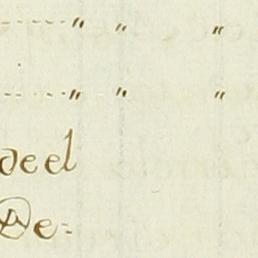 ----- " " "
----- " " "
deel
De=